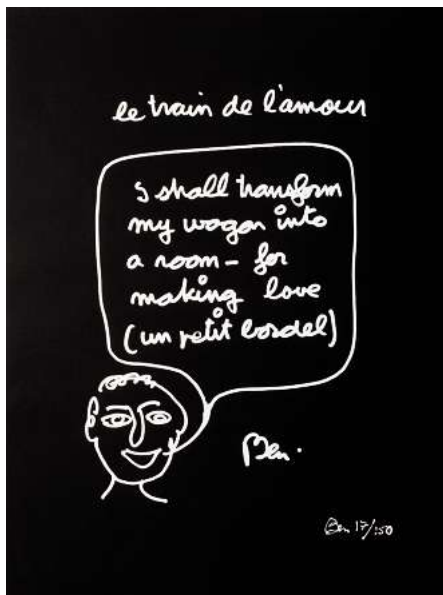 le train de l'amour
I shall transform
my wagon into
a room - for
making love
(un petit bordel)
Ben.
Ben 17/150